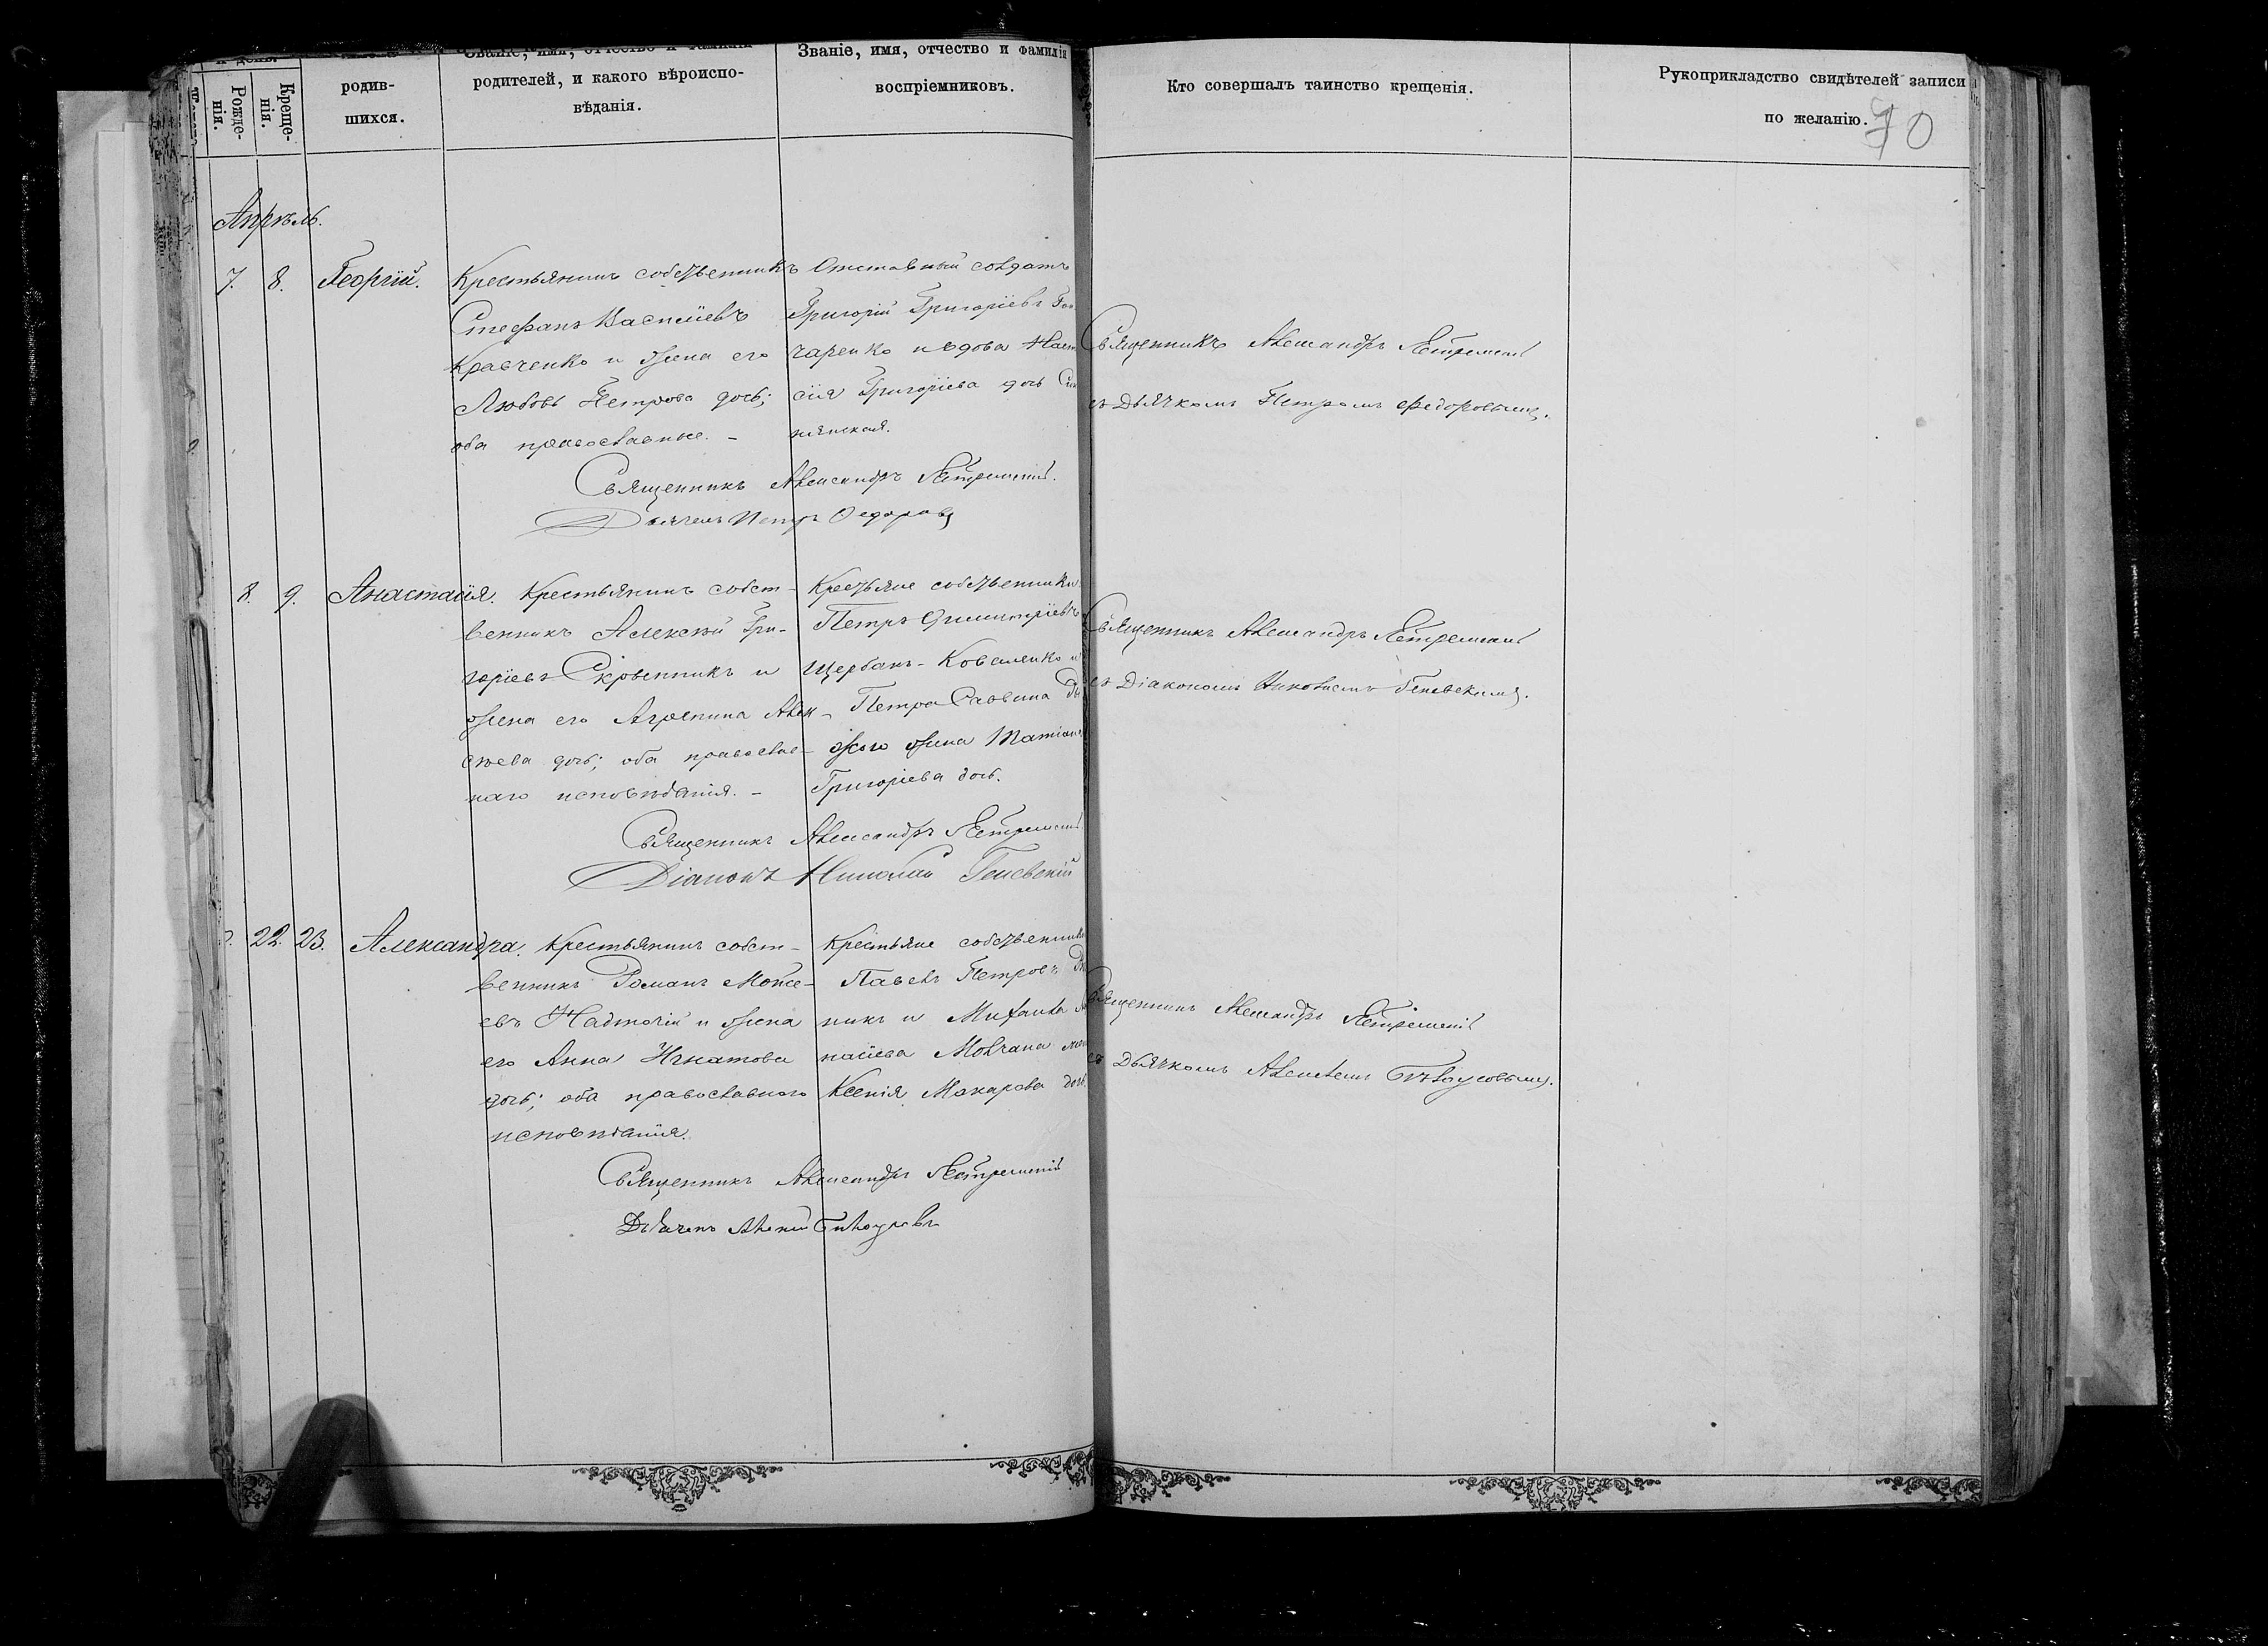 и день.
Рожде-
нія.
Креще-
нія.
родив-
шихся.
Званіе, имя, отчество и фамилія
родителей, и какого вѣроиспо-
вѣданія.
Званіе, имя, отчество и фамилія
воспріемниковъ.
Кто совершалъ таинство крещенія.
Рукоприкладство свидѣтелей записи
по желанію.
70
Апрѣль.
7. 8. Георгій. Крестьянинъ собственникъ
Стефанъ Василіевъ
Кравченко и жена его
Любовь Петрова дочь;
оба православные. –
Отставный солдатъ
Григорій Григоріевъ Гон
чаренко и вдова Наст
сія Григоріева дочь
Священникъ Александръ
съ Дьячкомъ Петромъ Федоровымъ.
Священникъ Александръ
Дьячекъ Петръ Федоровъ
8. 9. Анастасія. Крестьянинъ собст–
венникъ Алексѣй Гри–
горіевъ Скрынникъ и
жена его Агрипина Алек–
сѣева дочь; оба православ–
наго исповѣданія. –
Крестьяне собственники
Петръ Димитріевъ
Щербакъ-Коваленко и
Петра Саввина
жена
Григоріева дочь.
Священникъ Александръ
съ Діакономъ Николаемъ
Священникъ Александръ
Діаконъ Николай
22. 23. Александра. Крестьянинъ собст–
венникъ Романъ Мойсе–
евъ Надточій и жена
его Анна Игнатова
дочь; оба православного
исповѣданія.
Крестьяне собственники
Павелъ Петровъ
никъ и Михаила
Мовчана
Ксенія Макарова дочь.
Священникъ Александръ
съ Дьячкомъ Алексѣемъ Бѣлоусовымъ.
Священникъ Александръ
Дьячекъ Алексѣй Бѣлоусовъ